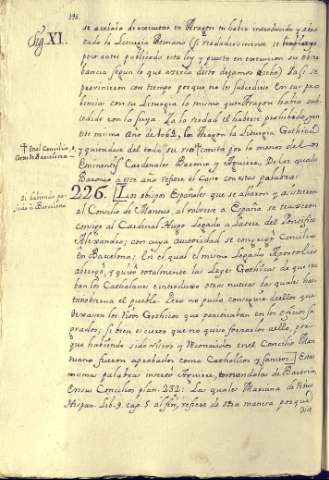 196.
Sig. XI.
se acabára de executar en Aragon su haber introducido y abra-
zado la Liturgia Romana (si verdaderamente se
por antes publicado esta ley, y puesta en execucion su obser-
bancia segun lo que acerca desto dejamos dicho) Pasi se
previnieron con tiempo porque no les subcediese En sus pro-
bincias con su Liturgia lo mismo que Aragon habia sub-
cedido con la suya. La verdad el haberse prohibido, en
este mismo Año de 1062, los Aragon la Liturgia Gothica,
y quitandose del todo, su por lo menos de los
Eminentisimos Cardenales Baronio y Aguirre, De los quales
Baronio a este año refiere el Caso con estas palabras:
† En el Concilio,
en Barcelona
Se
en Barcelona
226. Los obispos Españoles que se allaron y asistieron
al Concilio de Mantua, al volverse a España se truxeron
consigo al Cardenal Hugo Legado a Latere del Pontifice
Alexandro; con cuya autoridad se congregó Concilio
En Barcelona; En el qual el mismo Legado Apostolico
abrrogó, y quitó totalmente las Leyes Gothicas de que usa-
ban los Cathalanes e introduxo otras nuevas las quales han
el pueblo. Pero no pudo conseguir dellos que
dexaren los Ritos Gothicos que practicaban en los oficios sa-
grados; si bien es cierto que no quiso forzarlos a ello, por-
que habiendo sido vistos y reconocidos en el Concilio Man-
tuano fueron aprobados como Catholicos y sanos. Estas
mismas palabras insertó Aguirre, tomandolas de Baronio,
En sus Concilios plan. 232: Las quales Mariana de Rebus
Hispan. Lib. 9. cap. 5. al fin, refiere de otra manera, porque
dia